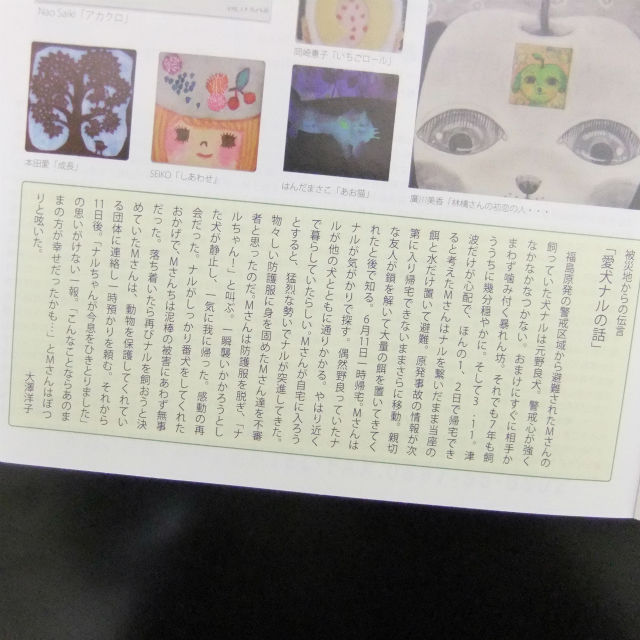 Nao Saiki「アカクロ」
岡崎恵子「いちごロール」
本田愛「成長」
SEIKO「しあわせ」
はんだまさこ「あお猫」
廣川美香「林檎さんの初恋の人・・・
被災地からの伝言
「愛犬ナルの話」
福島原発の警戒区域から避難されたMさんの
飼っていた犬ナルは元野良犬。警戒心が強く
なかなかなつかない。おまけにすぐに相手か
まわず噛み付く暴れん坊。それでも7年も飼
ううちに幾分穏やかに。そして3・11。津
波だけが心配で、ほんの1、2日で帰宅でき
ると考えたMさんはナルを繋いだまま当座の
餌と水だけ置いて避難。原発事故の情報が次
第に入り帰宅できないままさらに移動。親切
な友人が鎖を解いて大量の餌を置いてきてく
れたと後で知る。6月11日一時帰宅。Mさんは
ナルが気がかりで探す。偶然野良っていたナ
ルが他の犬とともに通りかかる。やはり近く
で暮らしていたらしい。Mさんが自宅に入ろう
とすると、猛烈な勢いでナルが突進してきた。
物々しい防護服に身を固めたMさん達を不審
者と思ったのだ。Mさんは防護服を脱ぎ、「ナ
ルちゃん！」と叫ぶ。一瞬襲いかかろうとし
た犬が静止し、一気に我に帰った。感動の再
会だった。ナルがしっかり番犬をしてくれた
おかげで、Mさんちは泥棒の被害にあわず無事
だった。落ち着いたら再びナルを飼おうと決
めていたMさんは、動物を保護してくれてい
る団体に連絡し一時預かりを頼む。それから
11日後。「ナルちゃんが今息をひきとりました」
の思いがけない一報。「こんなことならあのま
まの方が幸せだったかも…」とMさんはぽつ
りと呟いた。
大澤洋子